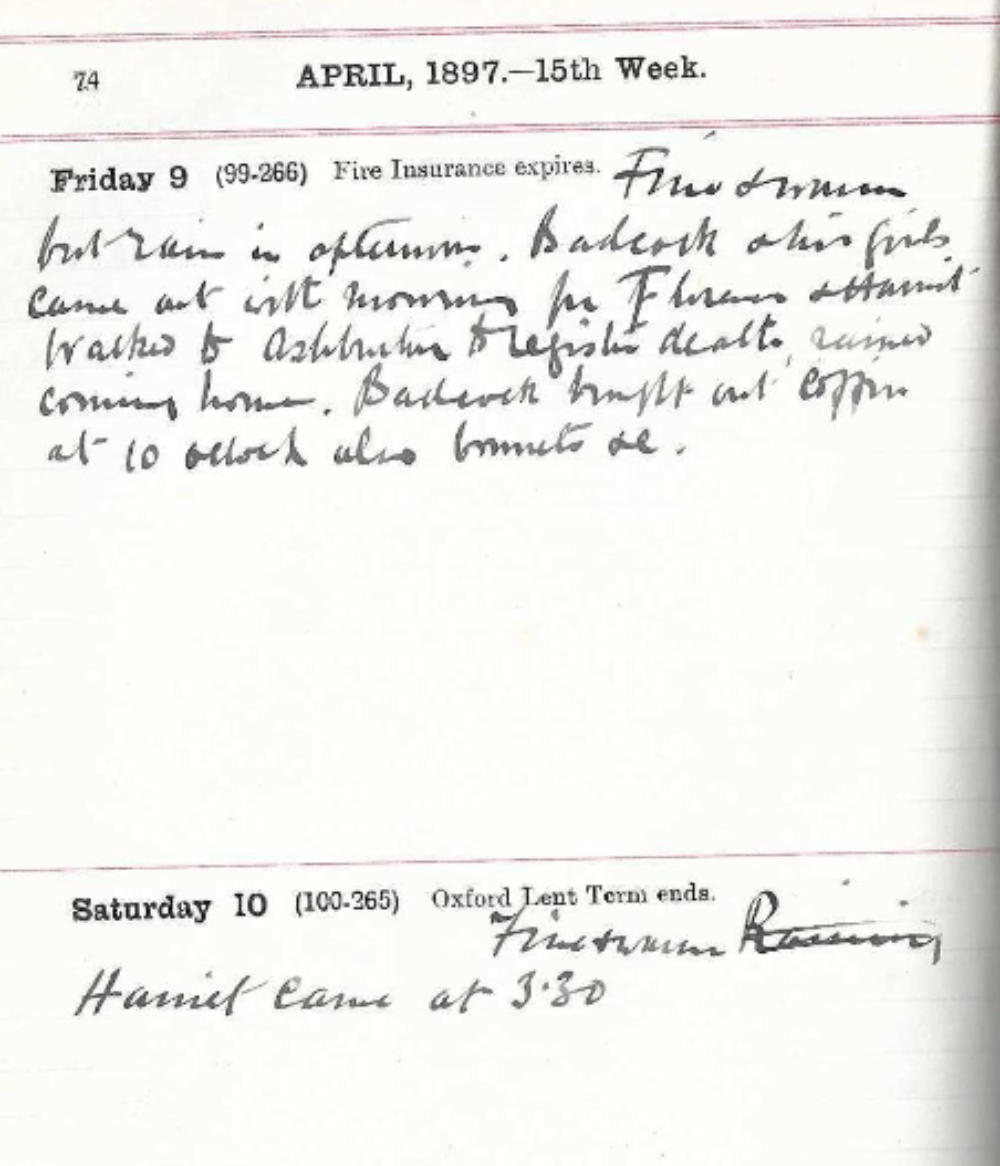 74
APRIL, 1897.—15th Week.
Friday 9 (99-266) Fire Insurance expires. Fine & warm
but rain in afternoon. Badcock & his girls
came out with mourning for Florence & Harriet
Walked to Ashburton to register death, rained
coming home. Badcock brought out coffin
at 10 oclock also bonnets &c.
Saturday 10 (100-265) Oxford Lent Term ends.
Fine & warm Raining
Harriet came at 3.30